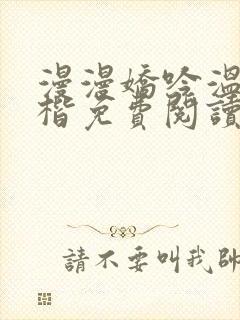 漫漫嬌吟溫
楷免費閱讀
請不要叫我帥